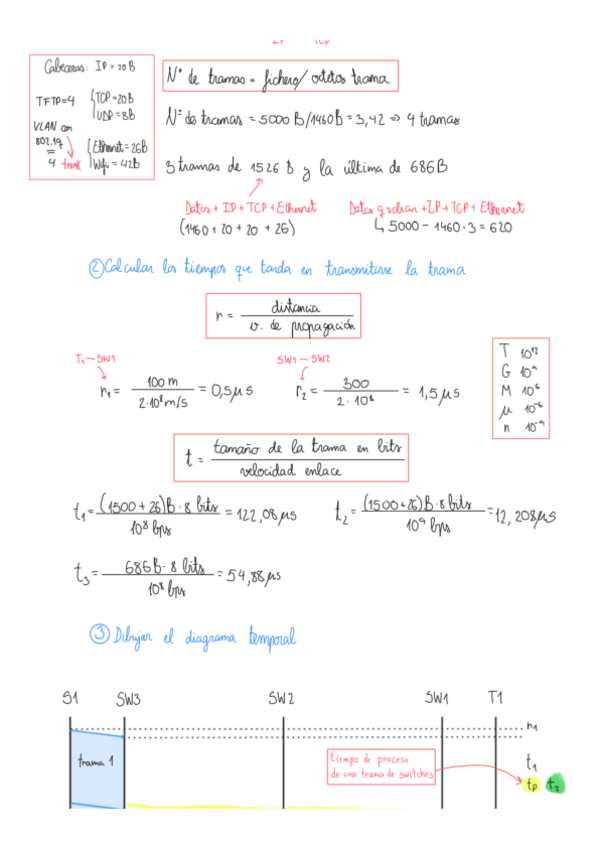 IP TCP
Cabeceras: IP = 20B
TFTP=4 { TCP=20B
UDP = 8B
VLAN con
802.1q
=
4 trunk
{ Ethernet = 26B
Wifi = 42B
Nº de tramas = fichero/octetos trama
Nº de tramas = 5000 B/1460B = 3,42 => 4 tramas
3 tramas de 1526 B y la última de 686B
Datos + IP + TCP + Ethernet
(1460 + 20 + 20 + 26)
Datos q echan + IP + TCP + Ethernet
↳ 5000 - 1460·3 = 620
② Calcular los tiempos que tarda en transmitirse la trama
r = distancia
v. de propagación
T1 - SW1
r1 = 100 m / 2·10⁸ m/s = 0,5 μs
SW1 - SW2
r2 = 300 / 2·10⁸ = 1,5 μs
T 10¹²
G 10⁹
M 10⁶
μ 10⁻⁶
n 10⁻⁹
t = tamaño de la trama en bits
velocidad enlace
t1 = (1500 + 26)B · 8 bits / 10⁸ bps = 122,08 μs
t2 = (1500 + 26)B · 8 bits / 10⁹ bps = 12,208 μs
t3 = 686B · 8 bits / 10⁸ bps = 54,88 μs
③ Dibujar el diagrama temporal
S1 SW3 SW2 SW1 T1
r1
trama 1
tiempo de proceso
de una trama de switches
t1
tp t2